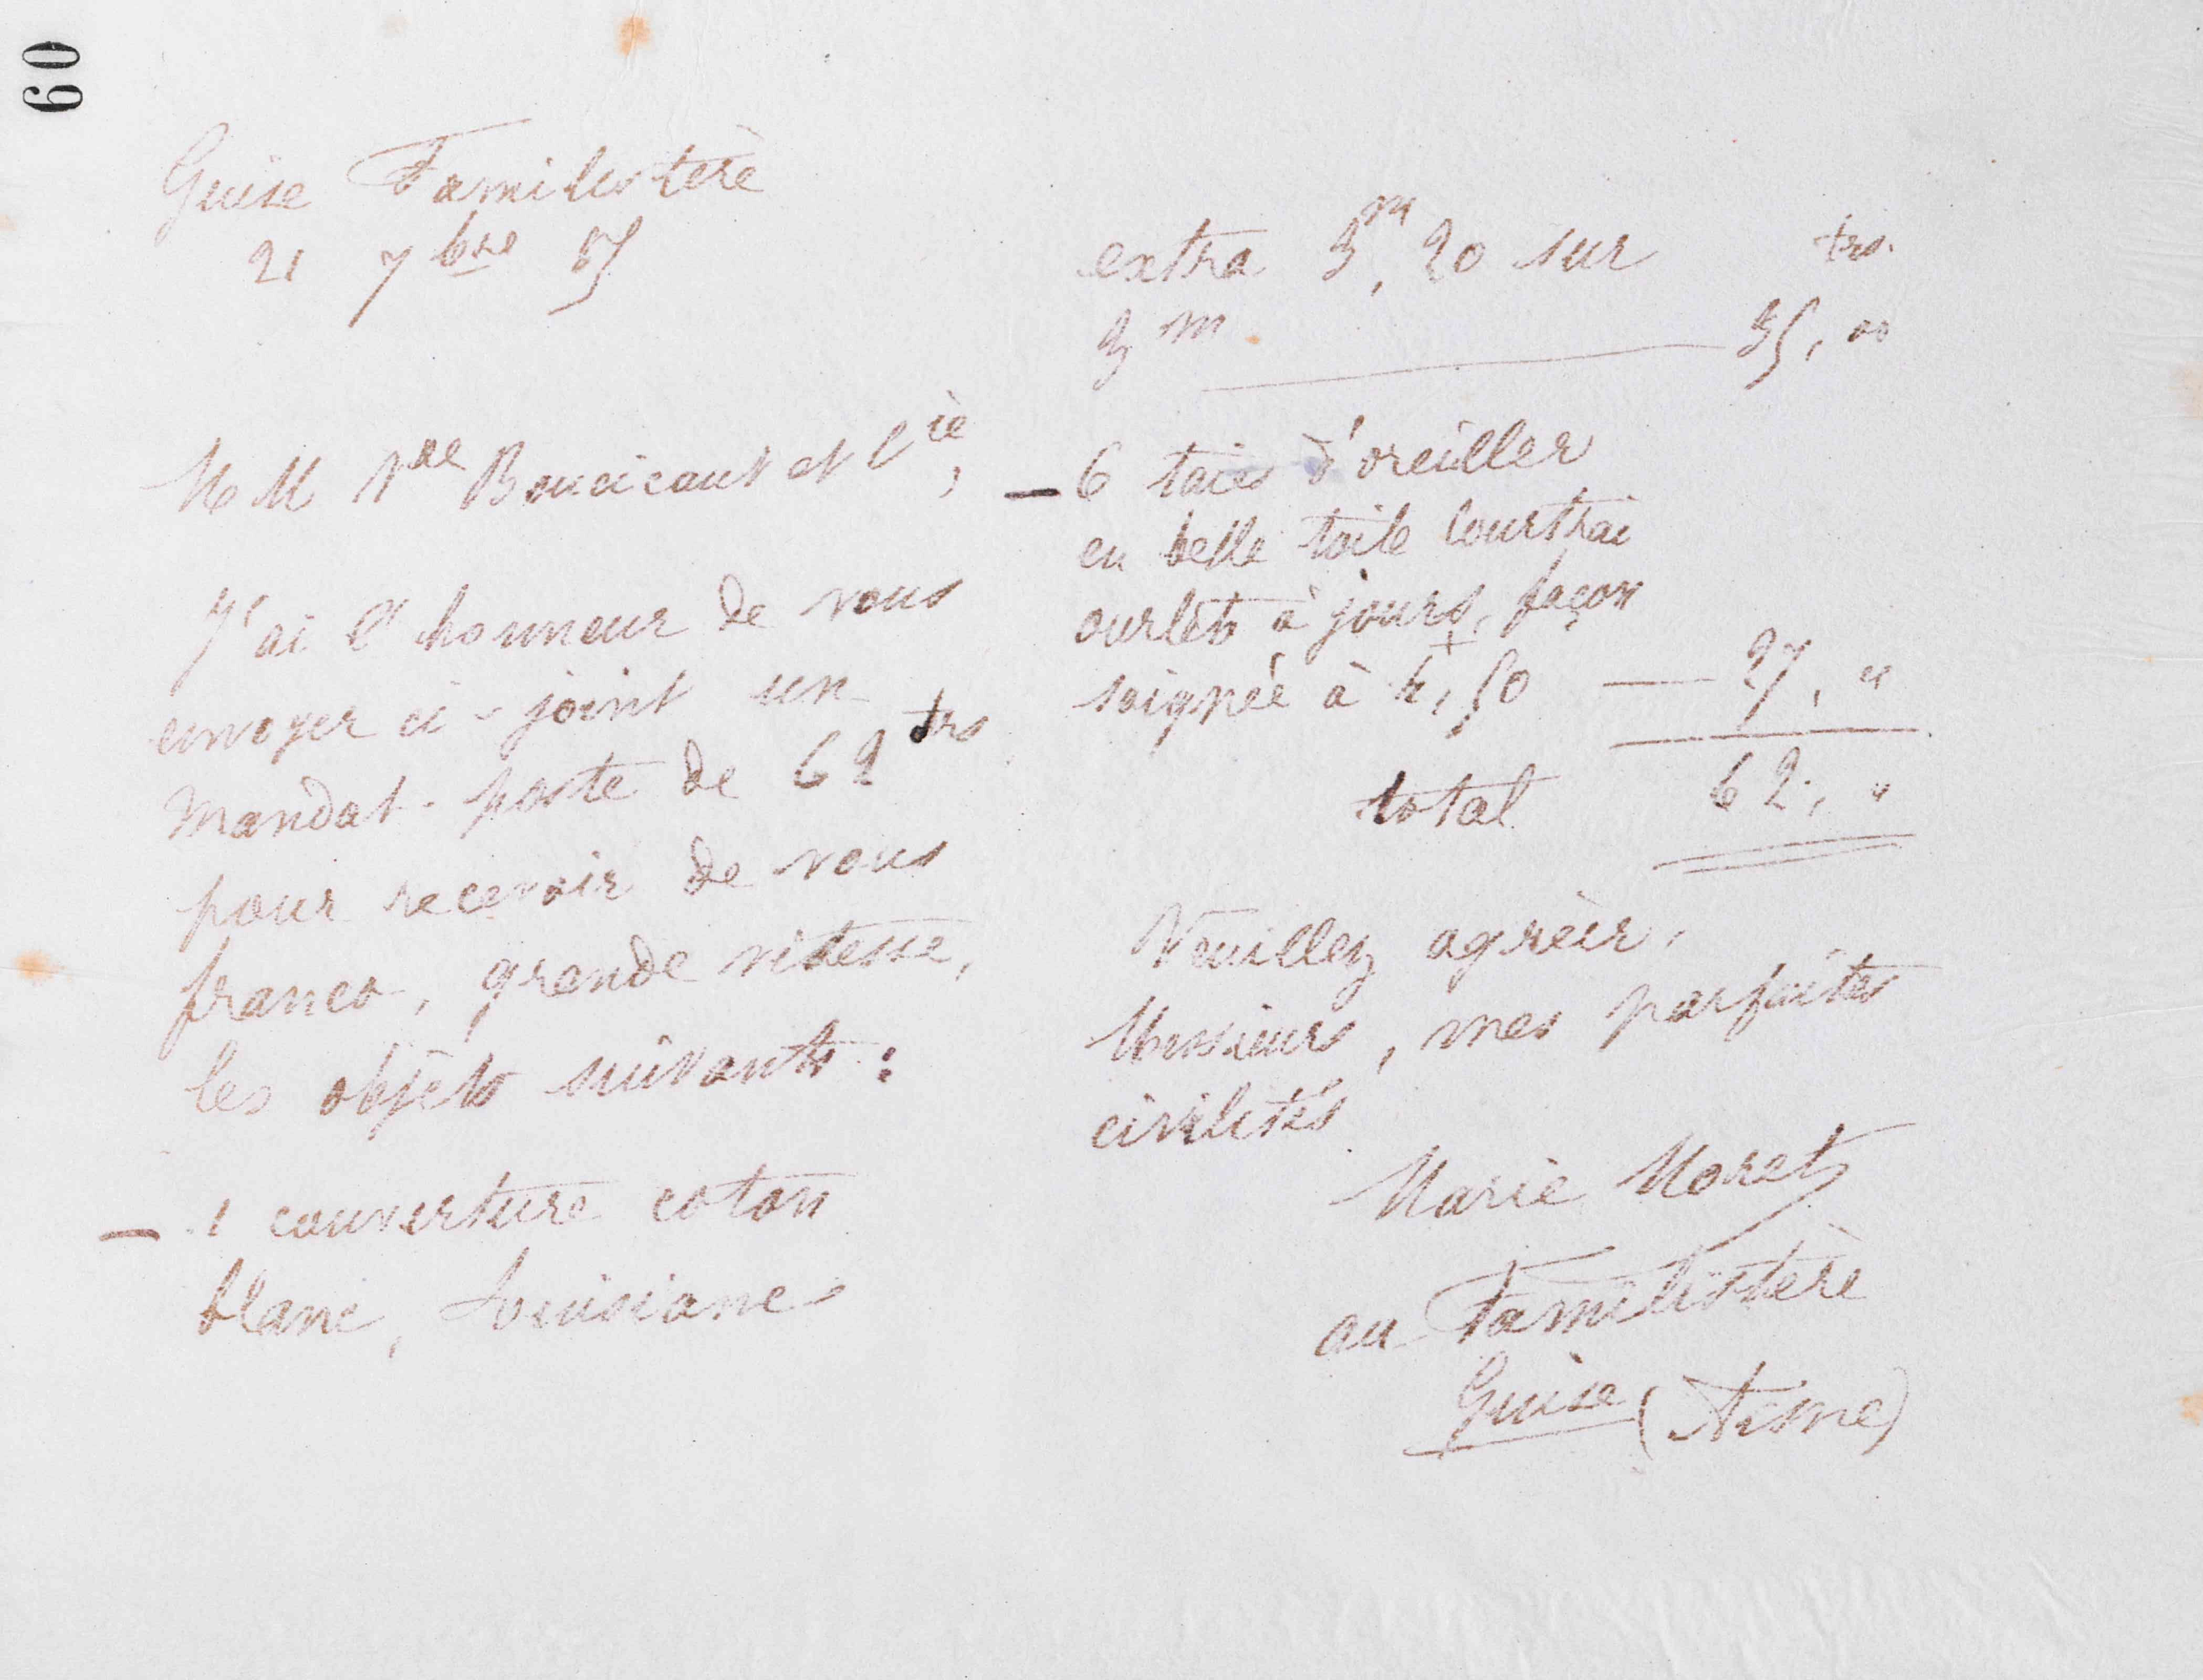 60
Guise Familistère
21 7bre 85
MM Vve Boucicaut et Cie,
J'ai l'honneur de vous
envoyer ci-joint un
mandat-poste de 62 frs
pour recevoir de vous
franco, grande vitesse,
les objets suivants :
— 1 couverture coton
blanc, Louisiane
extra 3m,20 sur frs.
3m — 35,00
— 6 taies d'oreiller
en belle toile Courtrai
ourlets à jours, façon
soignée à 4,50 — 27, "
total 62, "
Veuillez agréer,
Messieurs, mes parfaites
civilités
Marie Moret
au Familistère
Guise (Aisne)